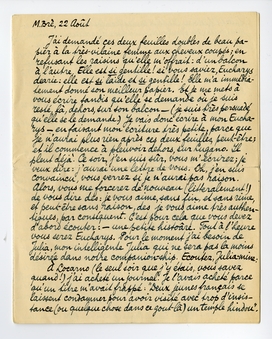 M.Brê, 22 Août
J'ai demandé ces deux feuilles doubles de beau pa-
pier à la très-vilaine femme aux cheveux coupés; en
refusant les raisins qu'elle m'offrait: d'un balcon
à l'autre. Elle est si gentille! si vous saviez, Eucharys
dearie: elle est si laide et si gentille! elle m'a immédia-
tement donné son meilleur papier. Et je me mets à
vous écrire tandis qu'elle se demande où je suis
resté, là, dehors, sur son balcon – (je suis très persuadé
qu'elle se le demande.) Je vais donc écrire à mon Eucha-
rys – en faisant mon écriture très petite, parce que
je n'aurai plus rien après ces deux feuilles peut-être;
et il commence à pleuvoir dehors, sur Lugano. Il
pleut déjà. Ce soir, j'en suis sûr, vous m'écrirez; je
veux dire: j'aurai une lettre de vous. Oh, j'en suis
convaincu; vous verrez si je n'aurai pas raison.
Alors, vous me forcerez de nouveau (littéralement!)
de vous dire des: je vous aime, sans fin, et sans rime,
et peut-être sans raison, des je vous aime très authen-
tiques, par conséquent. C'est pour cela que vous devez
d'abord écouter: – une petite histoire. Tout à l'heure
vous serez Eucharys. Pour le moment j'ai besoin de
Julia, mon intelligente Julia qui ne sera pas la moins
désirée dans notre companionship. Écoutez, Julia-mine.
A Locarno (le seul soir que j'y étais, vous savez
quand!) j'ai acheté un journal. Je l'avais acheté parce
qu'un titre m'avait frappé: "Deux jeunes français se
laissent condamner pour avoir visité avec trop d'insis-
tance (ou quelque chose dans ce goût-là) un temple hindou".